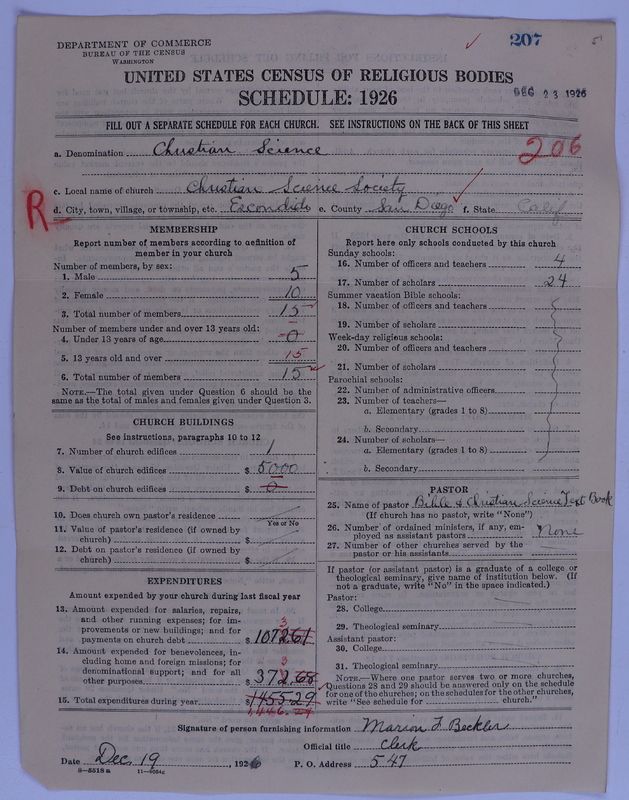 DEPARTMENT OF COMMERCE
BUREAU OF THE CENSUS
WASHINGTON
207
UNITED STATES CENSUS OF RELIGIOUS BODIES
SCHEDULE: 1926
DEC 23 1926
FILL OUT A SEPARATE SCHEDULE FOR EACH CHURCH. SEE INSTRUCTIONS ON THE BACK OF THIS SHEET
a. Denomination Christian Science
206
c. Local name of church Christian Science Society
R
d. City, town, village, or township, etc. Escondido e. County San Diego f. State Calif
MEMBERSHIP
Report number of members according to definition of
member in your church
Number of members, by sex:
1. Male 5
2. Female 10
3. Total number of members 15
Number of members under and over 13 years old:
4. Under 13 years of age 0
5. 13 years old and over 15
6. Total number of members 15
NOTE.—The total given under Question 6 should be the
same as the total of males and females given under Question 3.
CHURCH BUILDINGS
See instructions, paragraphs 10 to 12
7. Number of church edifices 1
8. Value of church edifices $ 5000
9. Debt on church edifices $ 0
10. Does church own pastor's residence
Yes or No
11. Value of pastor's residence (if owned by
church) $
12. Debt on pastor's residence (if owned by
church) $
EXPENDITURES
Amount expended by your church during last fiscal year
13. Amount expended for salaries, repairs,
and other running expenses; for im-
provements or new buildings; and for
payments on church debt $ 1072.61
3
14. Amount expended for benevolences, in-
cluding home and foreign missions; for
denominational support; and for all
other purposes $ 372.68
3
15. Total expenditures during year $ 1455.29
1,446.29
CHURCH SCHOOLS
Report here only schools conducted by this church
Sunday schools:
16. Number of officers and teachers 4
17. Number of scholars 24
Summer vacation Bible schools:
18. Number of officers and teachers
19. Number of scholars
Week-day religious schools:
20. Number of officers and teachers
21. Number of scholars
Parochial schools:
22. Number of administrative officers
23. Number of teachers—
a. Elementary (grades 1 to 8)
b. Secondary
24. Number of scholars—
a. Elementary (grades 1 to 8)
b. Secondary
PASTOR
25. Name of pastor Bible & Christian Science Text Book
(If church has no pastor, write "None")
26. Number of ordained ministers, if any, em-
ployed as assistant pastors None
27. Number of other churches served by the
pastor or his assistants
If pastor (or assistant pastor) is a graduate of a college or
theological seminary, give name of institution below. (If
not a graduate, write "No" in the space indicated.)
Pastor:
28. College
29. Theological seminary
Assistant pastor:
30. College
31. Theological seminary
NOTE.—Where one pastor serves two or more churches,
Questions 28 and 29 should be answered only on the schedule
for one of the churches; on the schedules for the other churches,
write "See schedule for church."
Signature of person furnishing information Marion F. Beckler
Official title Clerk
Date Dec. 19, 1926 P. O. Address 547
8—5518a 11—9054c